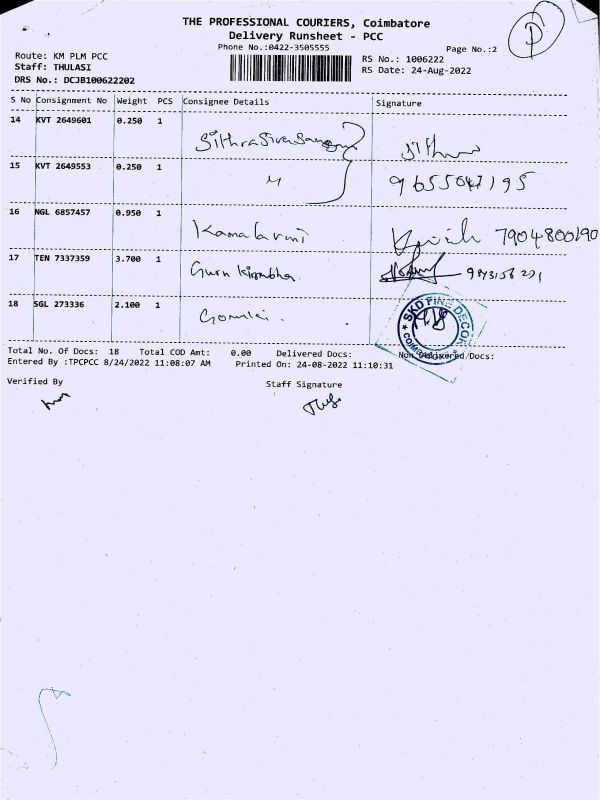 THE PROFESSIONAL COURIERS, Coimbatore
Delivery Runsheet - PCC
Phone No.:0422-3505555
Page No.:2
Route: KM PLM PCC
Staff: THULASI
DRS No.: DCJB100622202
RS No.: 1006222
RS Date: 24-Aug-2022
S No Consignment No Weight PCS Consignee Details Signature
14 KVT 2649601 0.250 1
15 KVT 2649553 0.250 1 9655047195
16 NGL 6857457 0.950 1 7904800190
17 TEN 7337359 3.700 1 Guru
18 SGL 273336 2.100 1
SKD FINE DECOR
Total No. Of Docs: 18 Total COD Amt: 0.00 Delivered Docs: Non Delivered Docs:
Entered By :TPCPCC 8/24/2022 11:08:07 AM Printed On: 24-08-2022 11:10:31
Verified By
Staff Signature